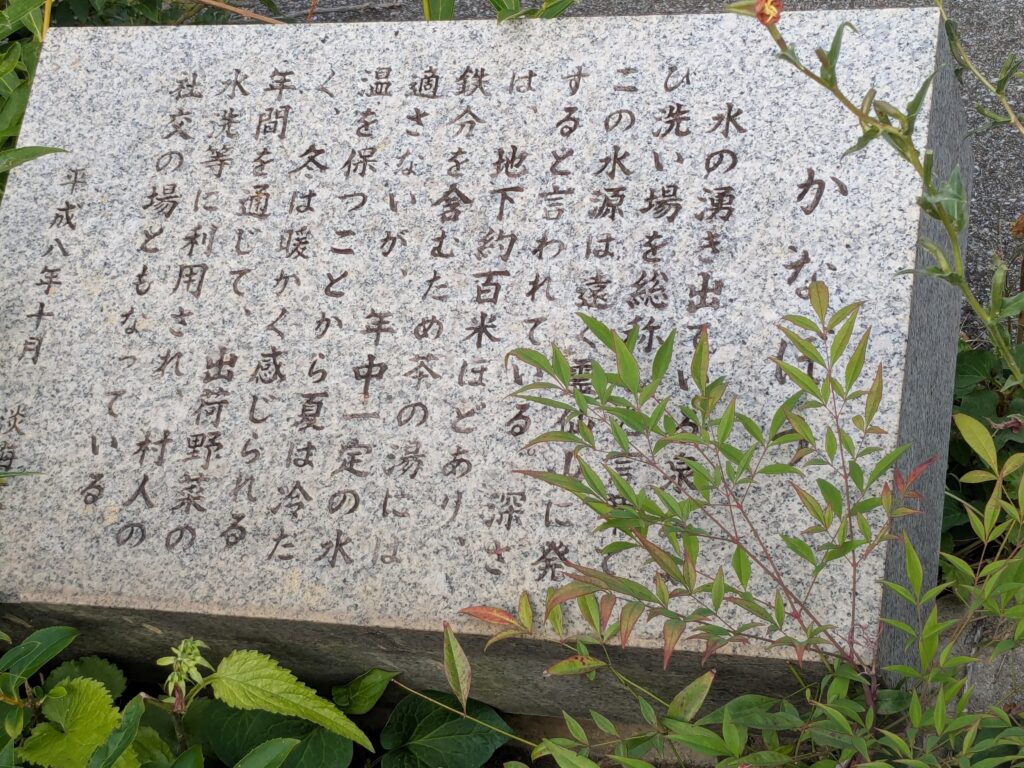 かな
水の湧き出ている泉
び洗い場を総称
この水源は遠く霊仙山に発
すると言われている。深さ
は、地下約百米ほどあり、
鉄分を含むため茶の湯には
適さないが、年中一定の水
温を保つことから夏は冷た
く、冬は暖かく感じられる
年間を通じて、出荷野菜の
水洗等に利用され、村人の
社交の場ともなっている。
平成八年十月 淡海